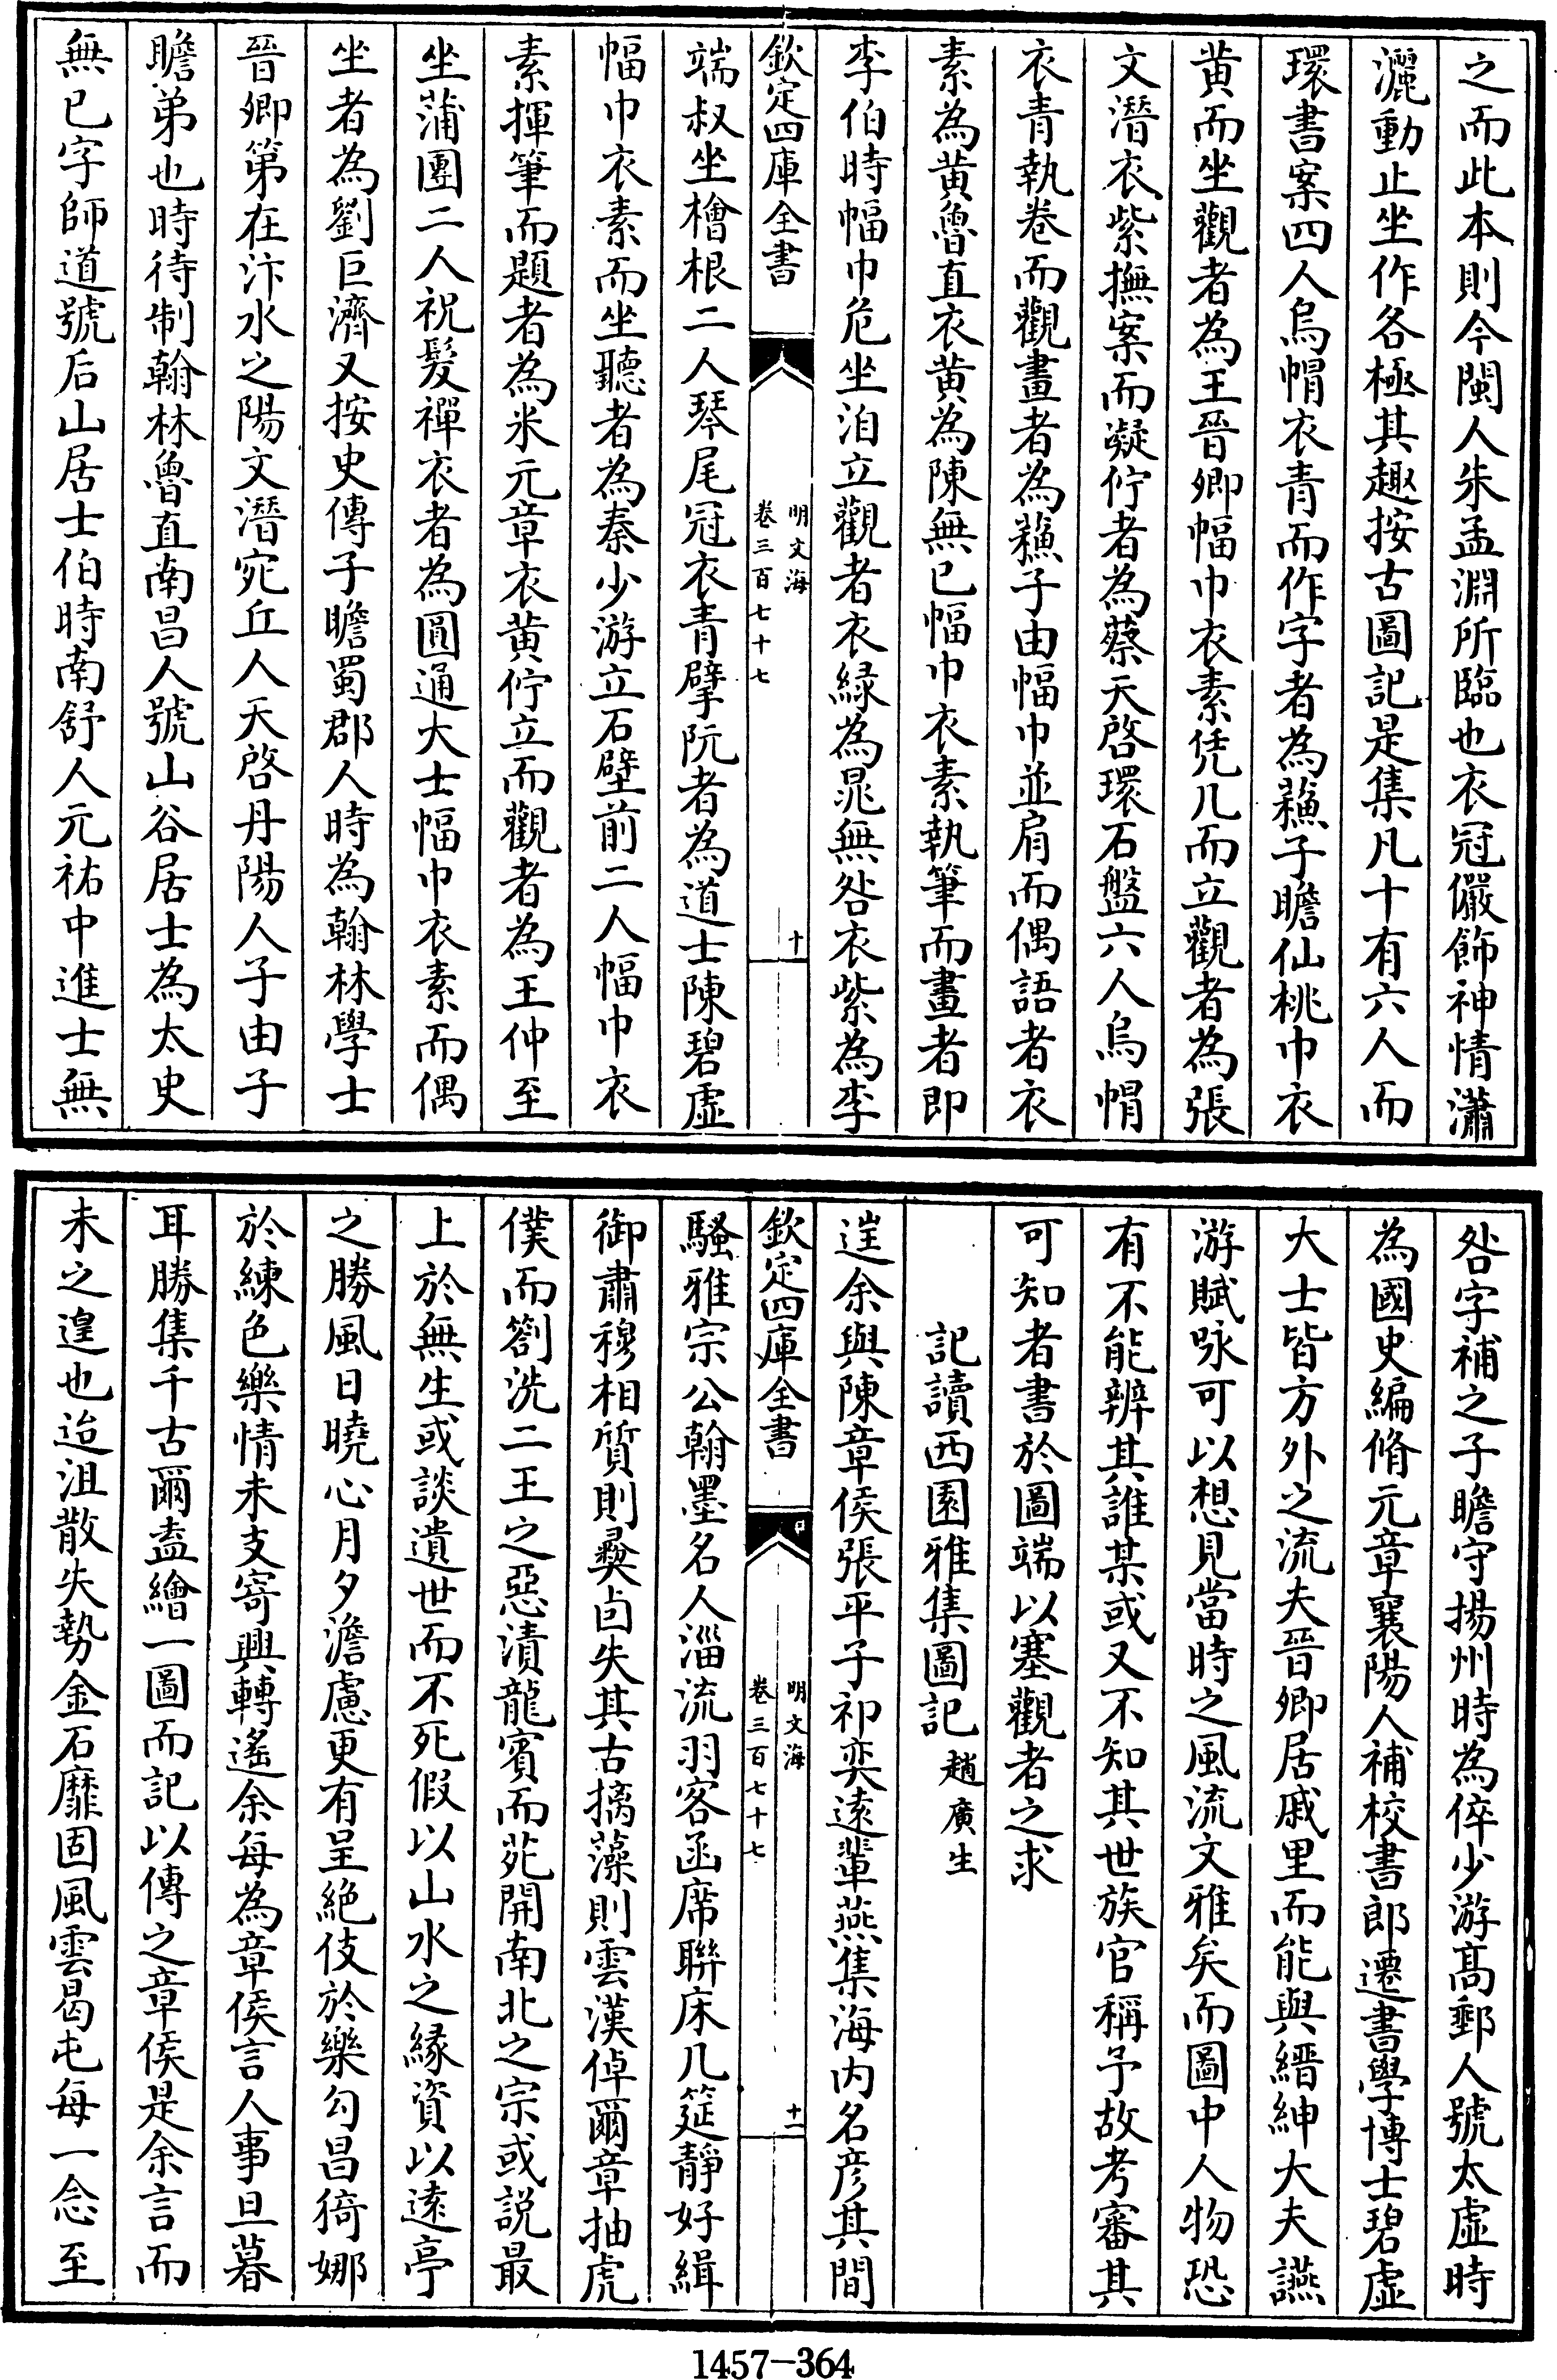 之而此本則今閩人朱孟淵所臨也衣冠儼飾神情瀟
灑動止坐作各極其趣按古圖記是集凡十有六人而
環書案四人烏帽衣青而作字者為蘓子瞻仙桃巾衣
黄而坐觀者為王晉卿幅巾衣素凭几而立觀者為張
文潛衣紫撫案而凝佇者為蔡天啓環石盤六人烏帽
衣青執卷而觀畫者為蘓子由幅巾並肩而偶語者衣
素為黄魯直衣黄為陳無已幅巾衣素執筆而畫者即
李伯時幅巾危坐洎立觀者衣緑為晁無咎衣紫為李
欽定四庫全書
明文海
卷三百七十七
十
端叔坐檜根二人琴尾冠衣青擘阮者為道士陳碧虛
幅巾衣素而坐聽者為秦少游立石壁前二人幅巾衣
素揮筆而題者為米元章衣黄佇立而觀者為王仲至
坐蒲團二人祝髮禪衣者為圓通大士幅巾衣素而偶
坐者為劉巨濟又按史傳子瞻蜀郡人時為翰林學士
晉卿第在汴水之陽文潛宛丘人天啓丹陽人子由子
瞻弟也時待制翰林魯直南昌人號山谷居士為太史
無已字師道號后山居士伯時南舒人元祐中進士無
咎字補之子瞻守揚州時為倅少游髙郵人號太虛時
為國史編脩元章襄陽人補校書郎遷書學博士碧虛
大士皆方外之流夫晉卿居戚里而能與縉紳大夫讌
游賦咏可以想見當時之風流文雅矣而圖中人物恐
有不能辨其誰某或又不知其世族官稱予故考審其
可知者書於圖端以塞觀者之求
記讀西園雅集圖記 趙廣生
逆余與陳章侯張平子祁奕逺輩燕集海内名彦其間
欽定四庫全書
明文海
卷三百七十七
十一
騷雅宗公翰墨名人淄流羽客函席聯床几筵靜好緝
御肅穆相質則彛卣失其古摛藻則雲漢倬爾章抽虎
僕而劄洗二王之惡漬龍賓而苑開南北之宗或説最
上於無生或談遺世而不死假以山水之縁資以逺亭
之勝風日曉心月夕澹慮更有呈絶伎於樂勾昌猗娜
於練色樂情未支寄興轉遙余每為章侯言人事旦暮
耳勝集千古爾盍繪一圖而記以傳之章侯是余言而
未之遑也迨沮散失勢金石靡固風雲曷屯每一念至
1457-364